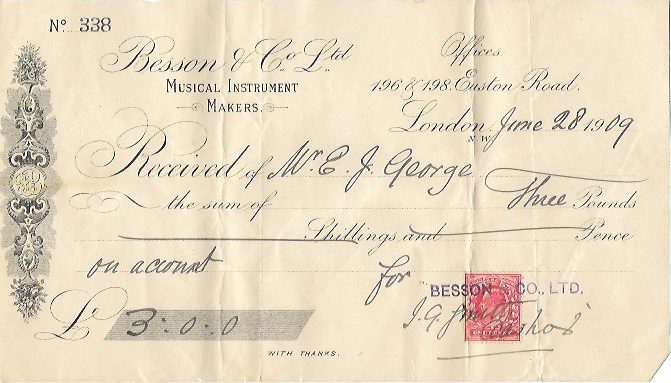 No. 338
Besson & Co. Ltd
Musical Instrument
Makers.
Offices.
196 & 198. Euston Road.
London. N.W. June 28 1909
Received of Mr E. J. George
the sum of Three Pounds
Shillings and Pence
on account
for
BESSON & CO., LTD.
£ 3:0:0
WITH THANKS.